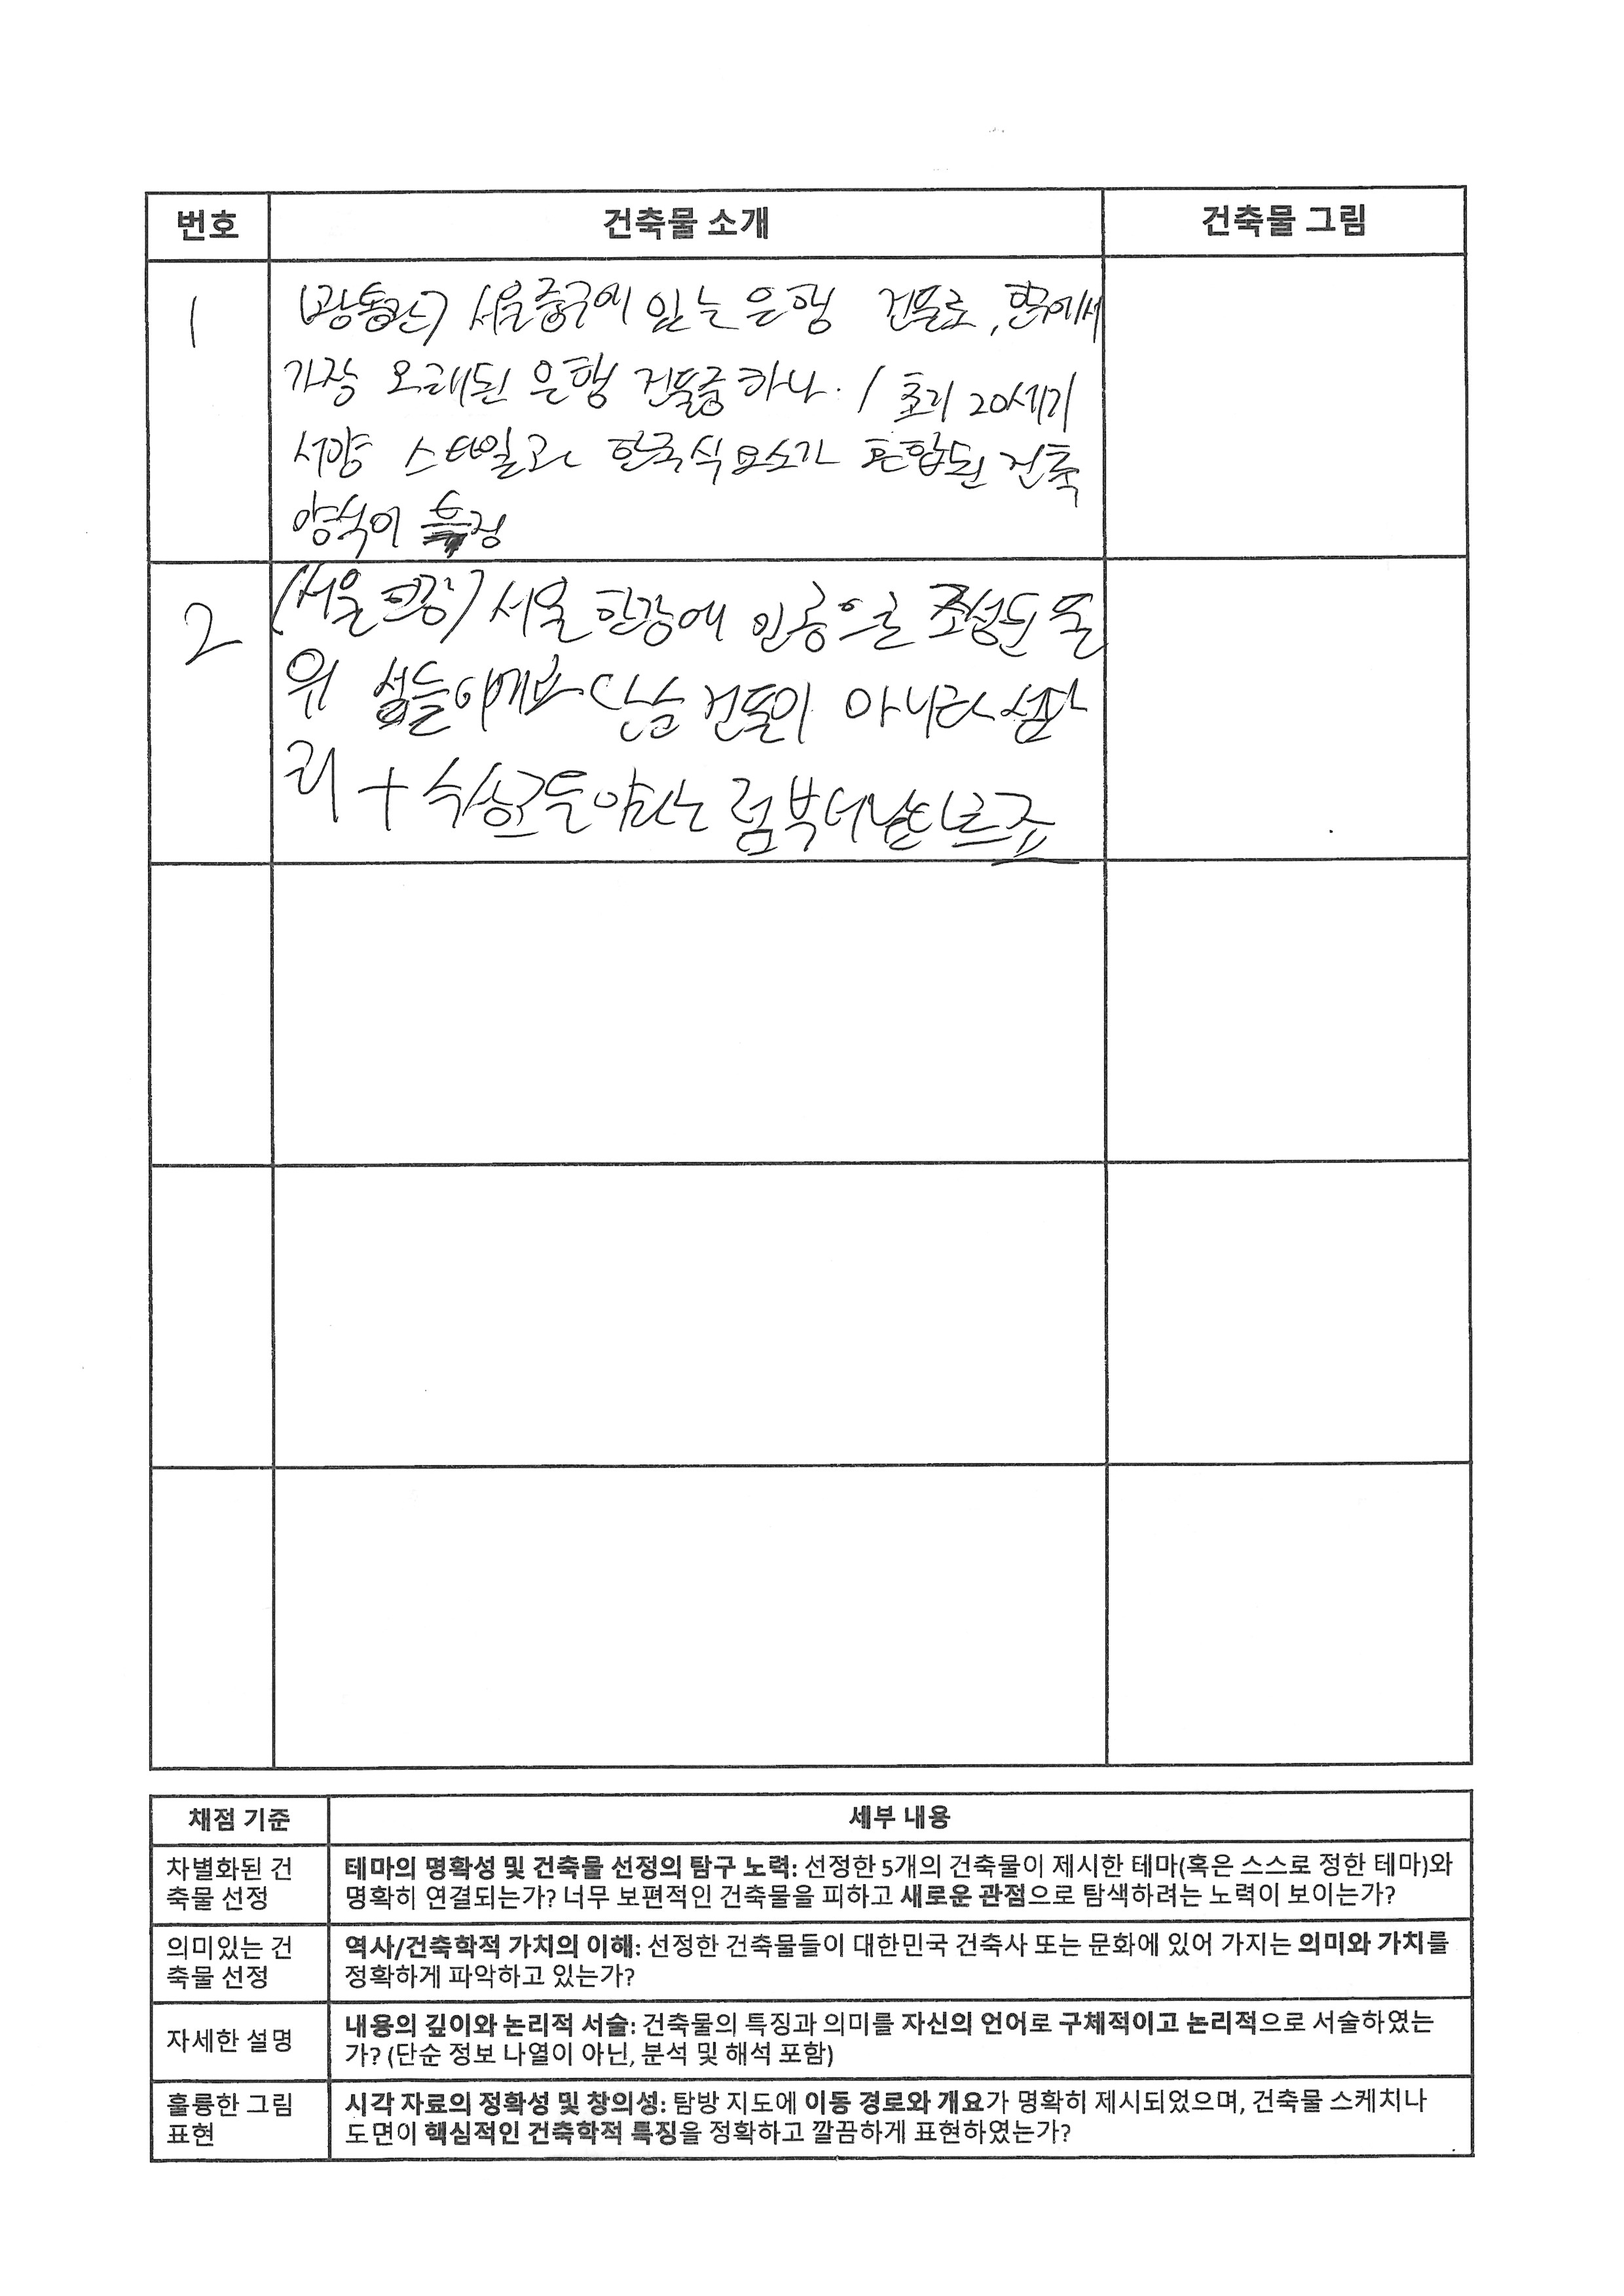 번호 건축물 소개 건축물 그림
1 (광통관) 서울중구에 있는 은행 건물로, 한국에서
가장 오래된 은행 건물중 하나. / 초기 20세기
서양 스타일과 한국식 요소가 혼합된 건축
양식이 특징
2 서울 한강에 인공으로 조성된 물
위 섬들이에요 단순 건물이 아니라 섬
채점 기준 세부 내용
차별화된 건
축물 선정
테마의 명확성 및 건축물 선정의 탐구 노력: 선정한 5개의 건축물이 제시한 테마(혹은 스스로 정한 테마)와
명확히 연결되는가? 너무 보편적인 건축물을 피하고 새로운 관점으로 탐색하려는 노력이 보이는가?
의미있는 건
축물 선정
역사/건축학적 가치의 이해: 선정한 건축물들이 대한민국 건축사 또는 문화에 있어 가지는 의미와 가치를
정확하게 파악하고 있는가?
자세한 설명
내용의 깊이와 논리적 서술: 건축물의 특징과 의미를 자신의 언어로 구체적이고 논리적으로 서술하였는
가? (단순 정보 나열이 아닌, 분석 및 해석 포함)
훌륭한 그림
표현
시각 자료의 정확성 및 창의성: 탐방 지도에 이동 경로와 개요가 명확히 제시되었으며, 건축물 스케치나
도면이 핵심적인 건축학적 특징을 정확하고 깔끔하게 표현하였는가?